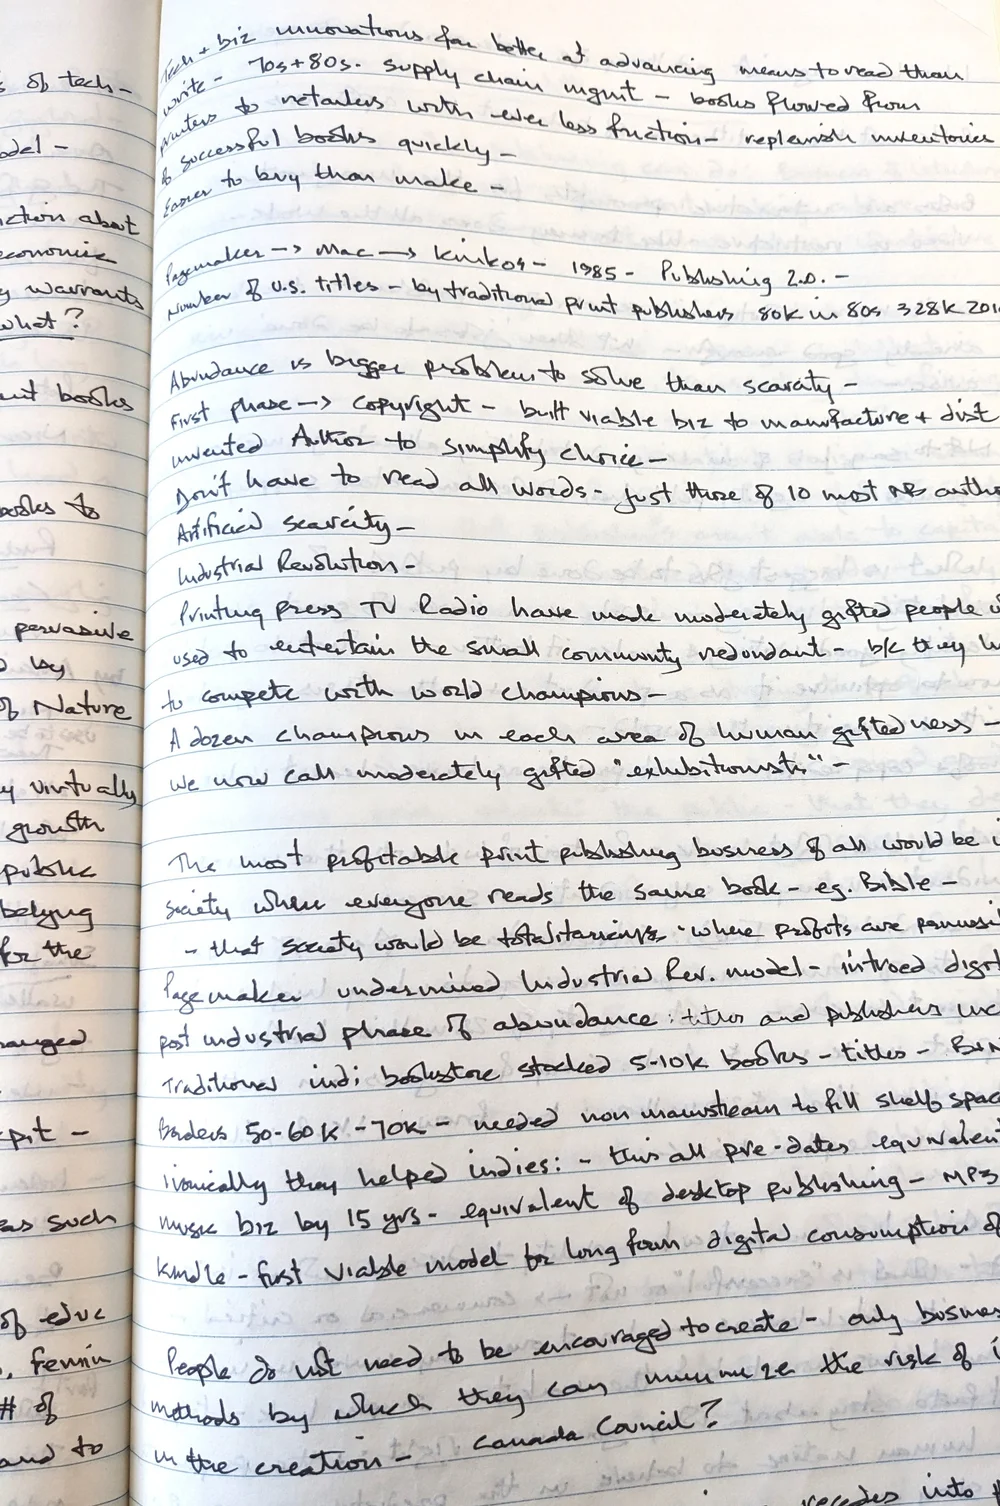 s of tech -
odel -
ction about
economic
y warrants
what?
books
books to
pervasive
by
of Nature
y virtually
growth
public
belying
for the
anged
pit -
as such
of educ
, femin
# of
and to
Tech + biz innovations far better at advancing means to read than
write - 70s + 80s. supply chain mgmt - books flowed from
printers to retailers with ever less friction - replenish inventories
of successful books quickly -
Easier to buy than make -
Pagemaker -> Mac -> Kinkos - 1985 - Publishing 2.0. -
Number of U.S. titles - by traditional print publishers 80K in 80s 328K 201
Abundance is bigger problem to solve than scarcity -
First phase -> copyright - built viable biz to manufacture + dist
invented Author to simplify choice -
Don't have to read all words - just those of 10 most NB autho
Artificial scarcity -
Industrial Revolution -
Printing press TV Radio have made moderately gifted people
used to entertain the small community redundant - b/c they h
to compete with world champions -
A dozen champions in each area of human giftedness -
we now call moderately gifted "exhibitionists" -
The most profitable print publishing business of all would be i
society where everyone reads the same book - eg. Bible -
- that society would be totalitarian - where profits are
Pagemaker undermined Industrial Rev. model - introed digit
post industrial phase of abundance: titles and publishers inc
Traditional indi bookstore stocked 5-10K books - titles - B+N
Borders 50-60K - 70K - needed non mainstream to fill shelf spac
ironically they helped indies: - this all pre-dates equivalent
music biz by 15 yrs - equivalent of desktop publishing - MP3
Kindle - first viable model for long form digital consumption of
People do not need to be encouraged to create - only busines
methods by which they can minimize the risk of i
in the creation - Canada Council?
recedes into